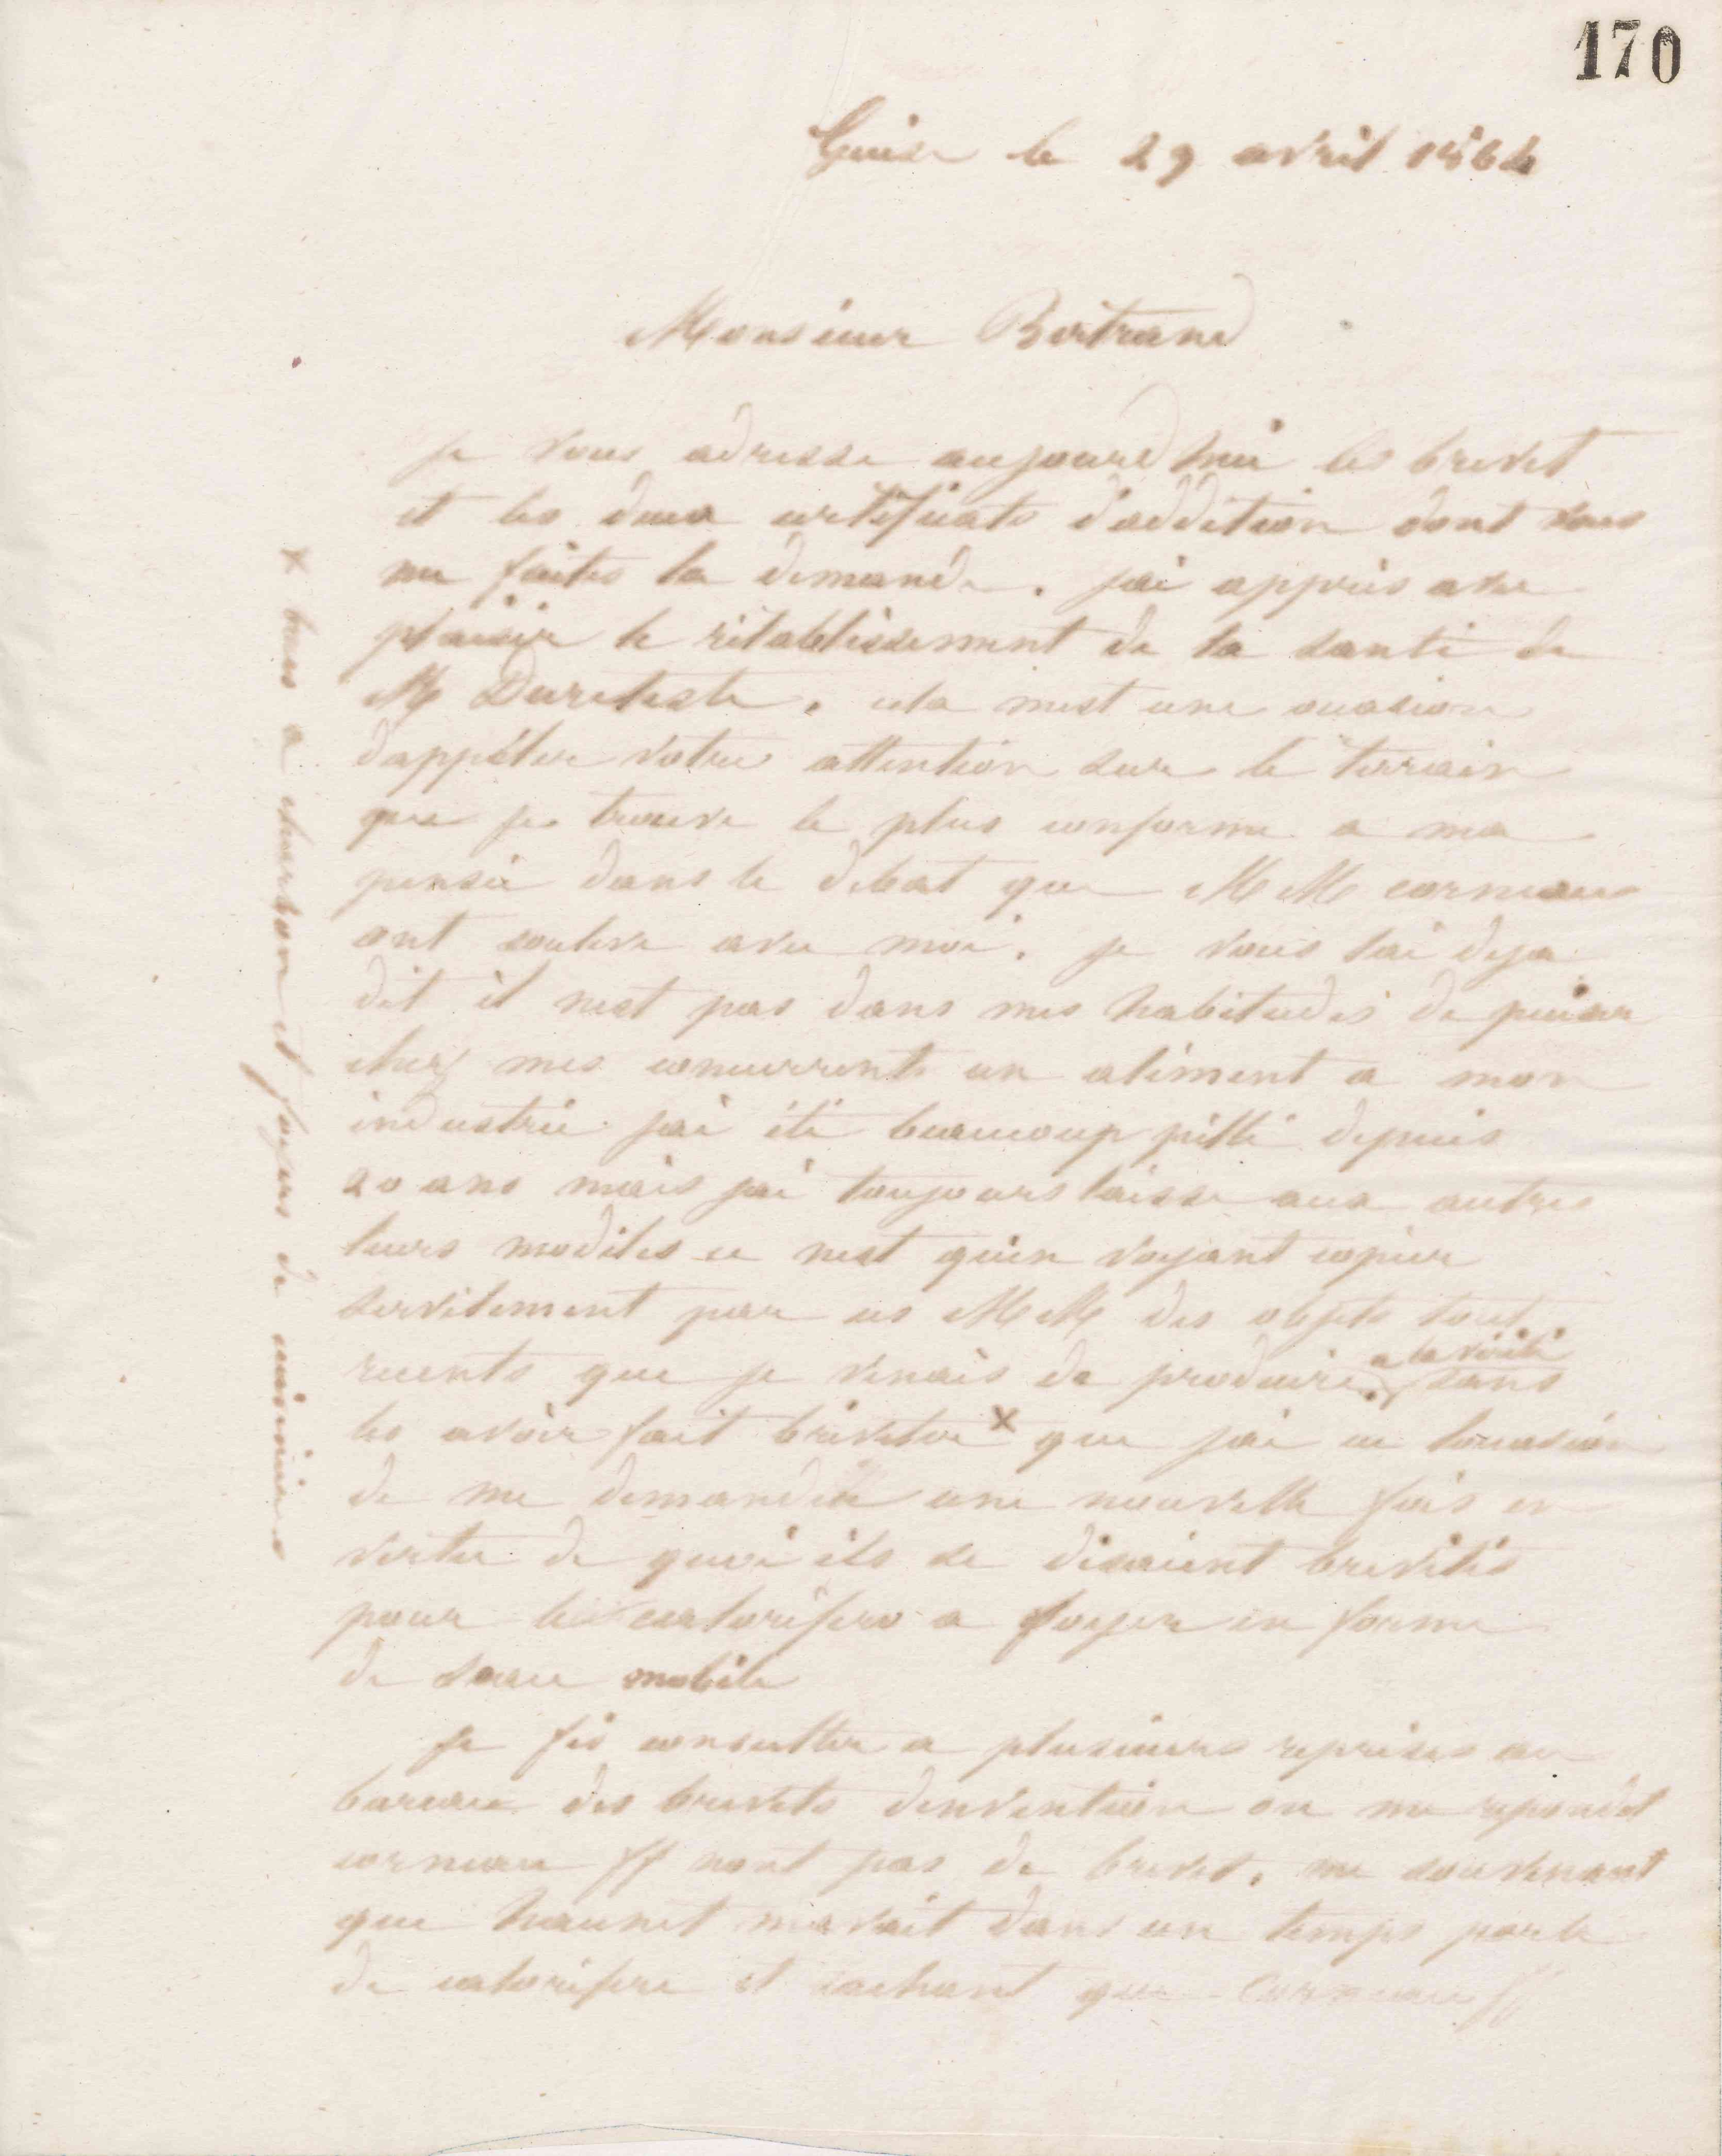 170
Guise le 29 avril 1864
Monsieur Bertrand
je vous adresse aujourdhui les brevet
et les deux certificats d'addition dont vous
me faites la demande. jai appris avec
plaisir le rétablissement de la santé de
M Dureteste. cela mest une occasion
dappeler votre attention sur le terrain
que je trouve le plus conforme a ma
pensée dans le debat que MM corneau
ont soulevé avec moi. je vous lai deja
dit il nest pas dans mes habitudes de puiser
chez mes concurrents un aliment a mon
industrie jai été beaucoup pillé depuis
20 ans mais jai toujours laissé aux autres
leurs modèles ce nest quen voyant copier
servilement par ces MM des objets tout
recents que je venais de produire a la vérité sans
les avoir fait breveter x que jai eu loccasion
de me demander une nouvelle fois en
vertu de quoi ils se disaient brevetés
pour le calorifère a foyer en forme
de vase mobile
je fis consulter a plusieurs reprises au
bureau des brevets dinvention on me repondit
corneau ff nont pas de brevet. me souvenant
que haunet mavait dans un temps parle
de calorifere et sachant que Corneau ff
x bacs a charbon et foyers de cuisinières